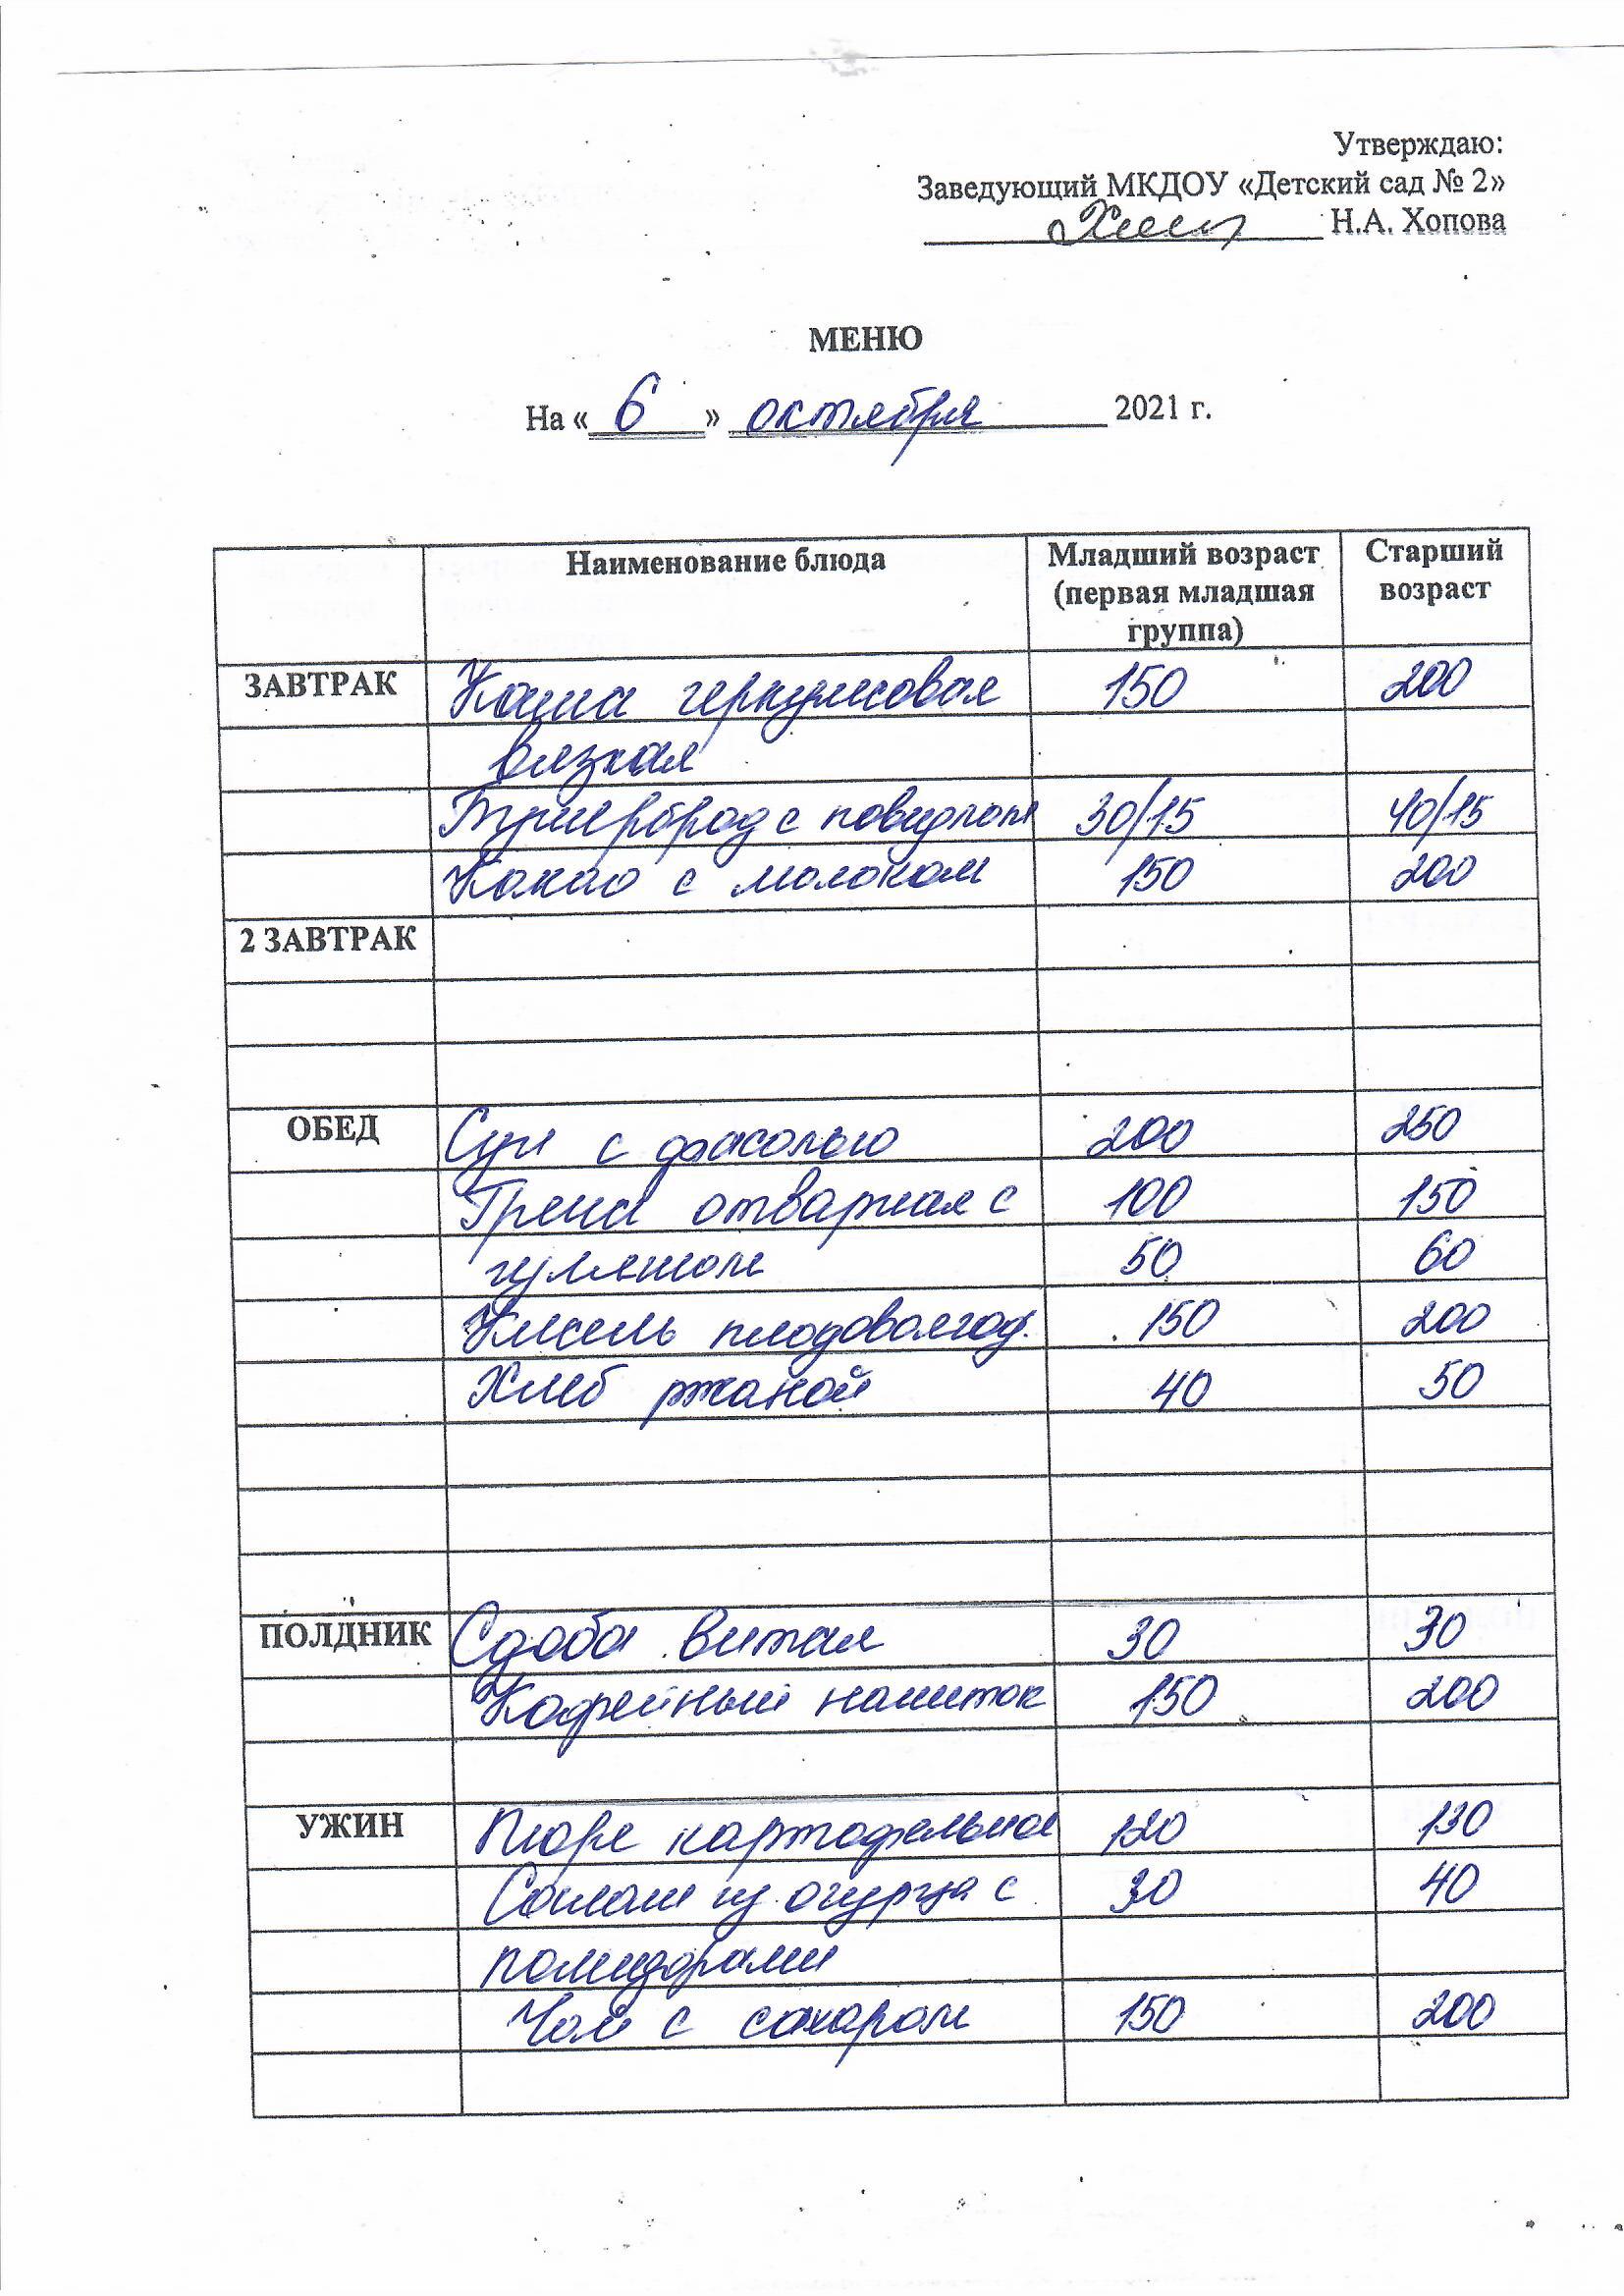 Утверждаю:
Заведующий МКДОУ «Детский сад № 2»
Н.А. Хопова
МЕНЮ
На «6» октября 2021 г.
Наименование блюда Младший возраст (первая младшая группа) Старший возраст
ЗАВТРАК Каша геркулесовая 150 200
вязкая
Бутерброд с повидлом 30/15 40/15
Какао с молоком 150 200
2 ЗАВТРАК
ОБЕД Суп с фасолью 200 250
Греча отварная с 100 150
гуляшом 50 60
Кисель плодовоягод. 150 200
Хлеб ржаной 40 50
ПОЛДНИК Сдоба витая 30 30
Кофейный напиток 150 200
УЖИН Пюре картофельное 120 130
Салат из огурца с 30 40
помидорами
Чай с сахаром 150 200